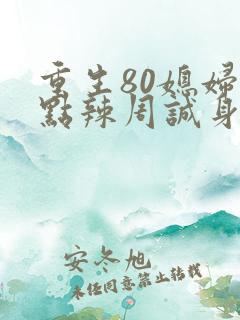 重生80媳婦
點辣周誠身
安冬旭
未经同意禁止转载